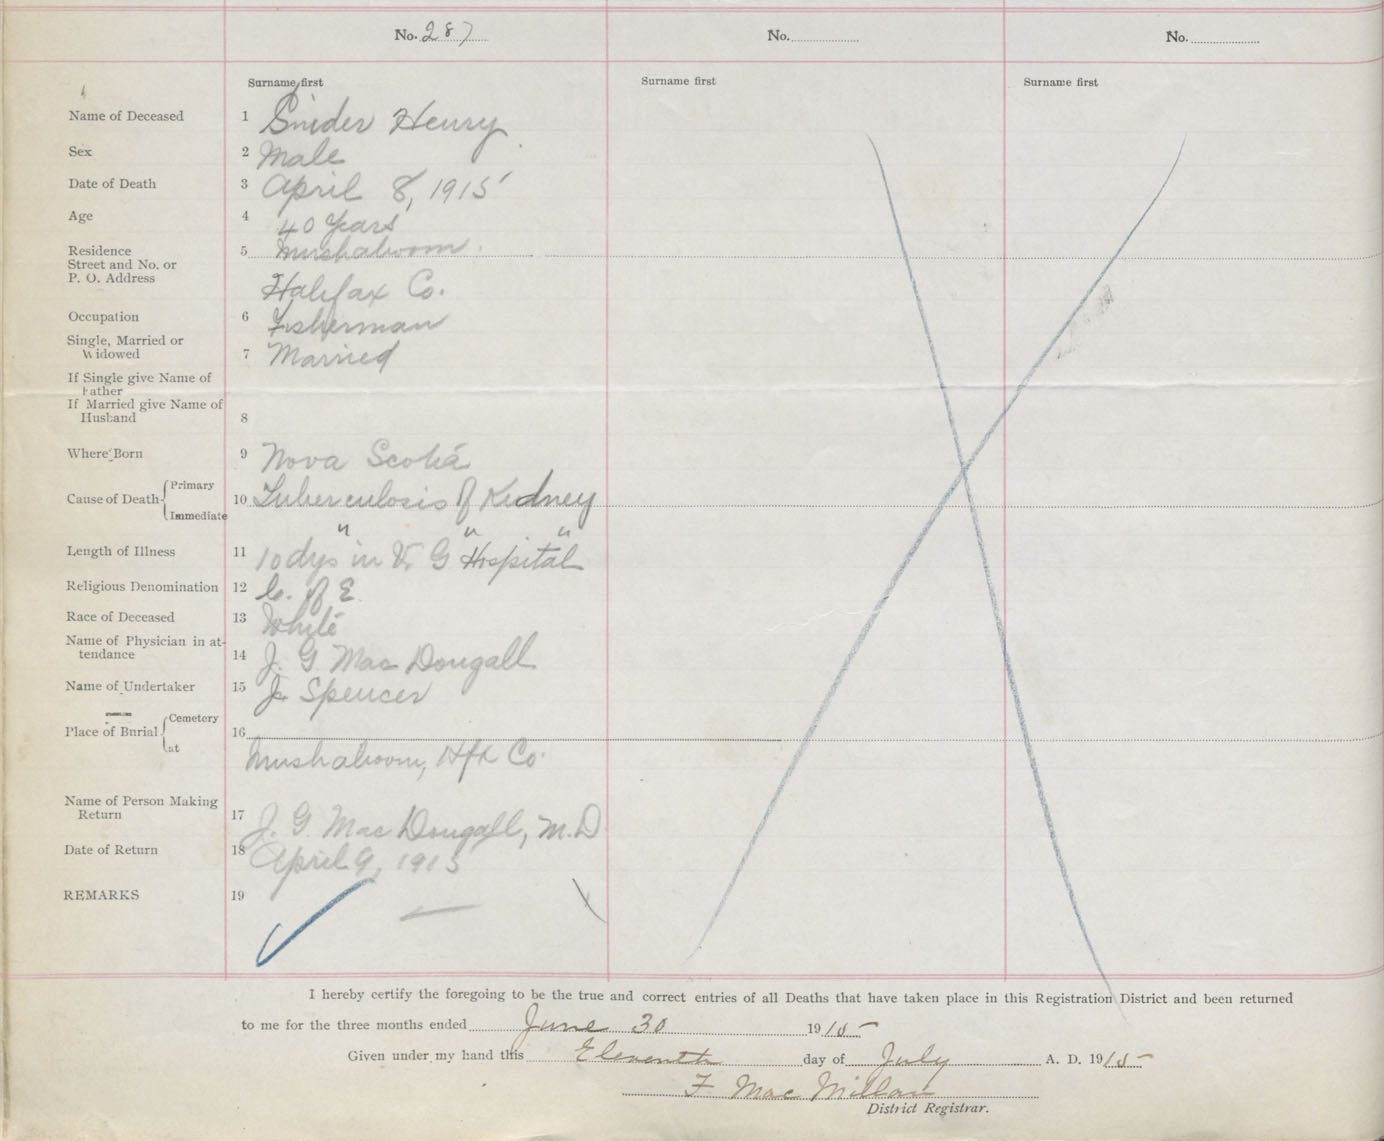 No. 287 No. No.
Surname first Surname first Surname first
Name of Deceased 1 Snider Henry
Sex 2 Male
Date of Death 3 April 8, 1915
Age 4 40 Years
Residence 5 Mushaboom.
Street and No. or
P. O. Address Halifax Co.
Occupation 6 Fisherman
Single, Married or
Widowed 7 Married
If Single give Name of
Father
If Married give Name of
Husband 8
Where Born 9 Nova Scotia
Cause of Death Primary 10 Tuberculosis of Kidney
Immediate " " "
Length of Illness 11 10 dys in V. G Hospital
Religious Denomination 12 C. of E.
Race of Deceased 13 White
Name of Physician in at-
tendance 14 J. G. MacDougall
Name of Undertaker 15 J Spencer
Place of Burial Cemetery 16
at Mushaboom, Hfx Co.
Name of Person Making
Return 17 J. G. MacDougall, M.D
Date of Return 18 April 9, 1915
REMARKS 19
I hereby certify the foregoing to be the true and correct entries of all Deaths that have taken place in this Registration District and been returned
to me for the three months ended June 30 1915
Given under my hand this Eleventh day of July A. D. 1915
F MacMillan
District Registrar.